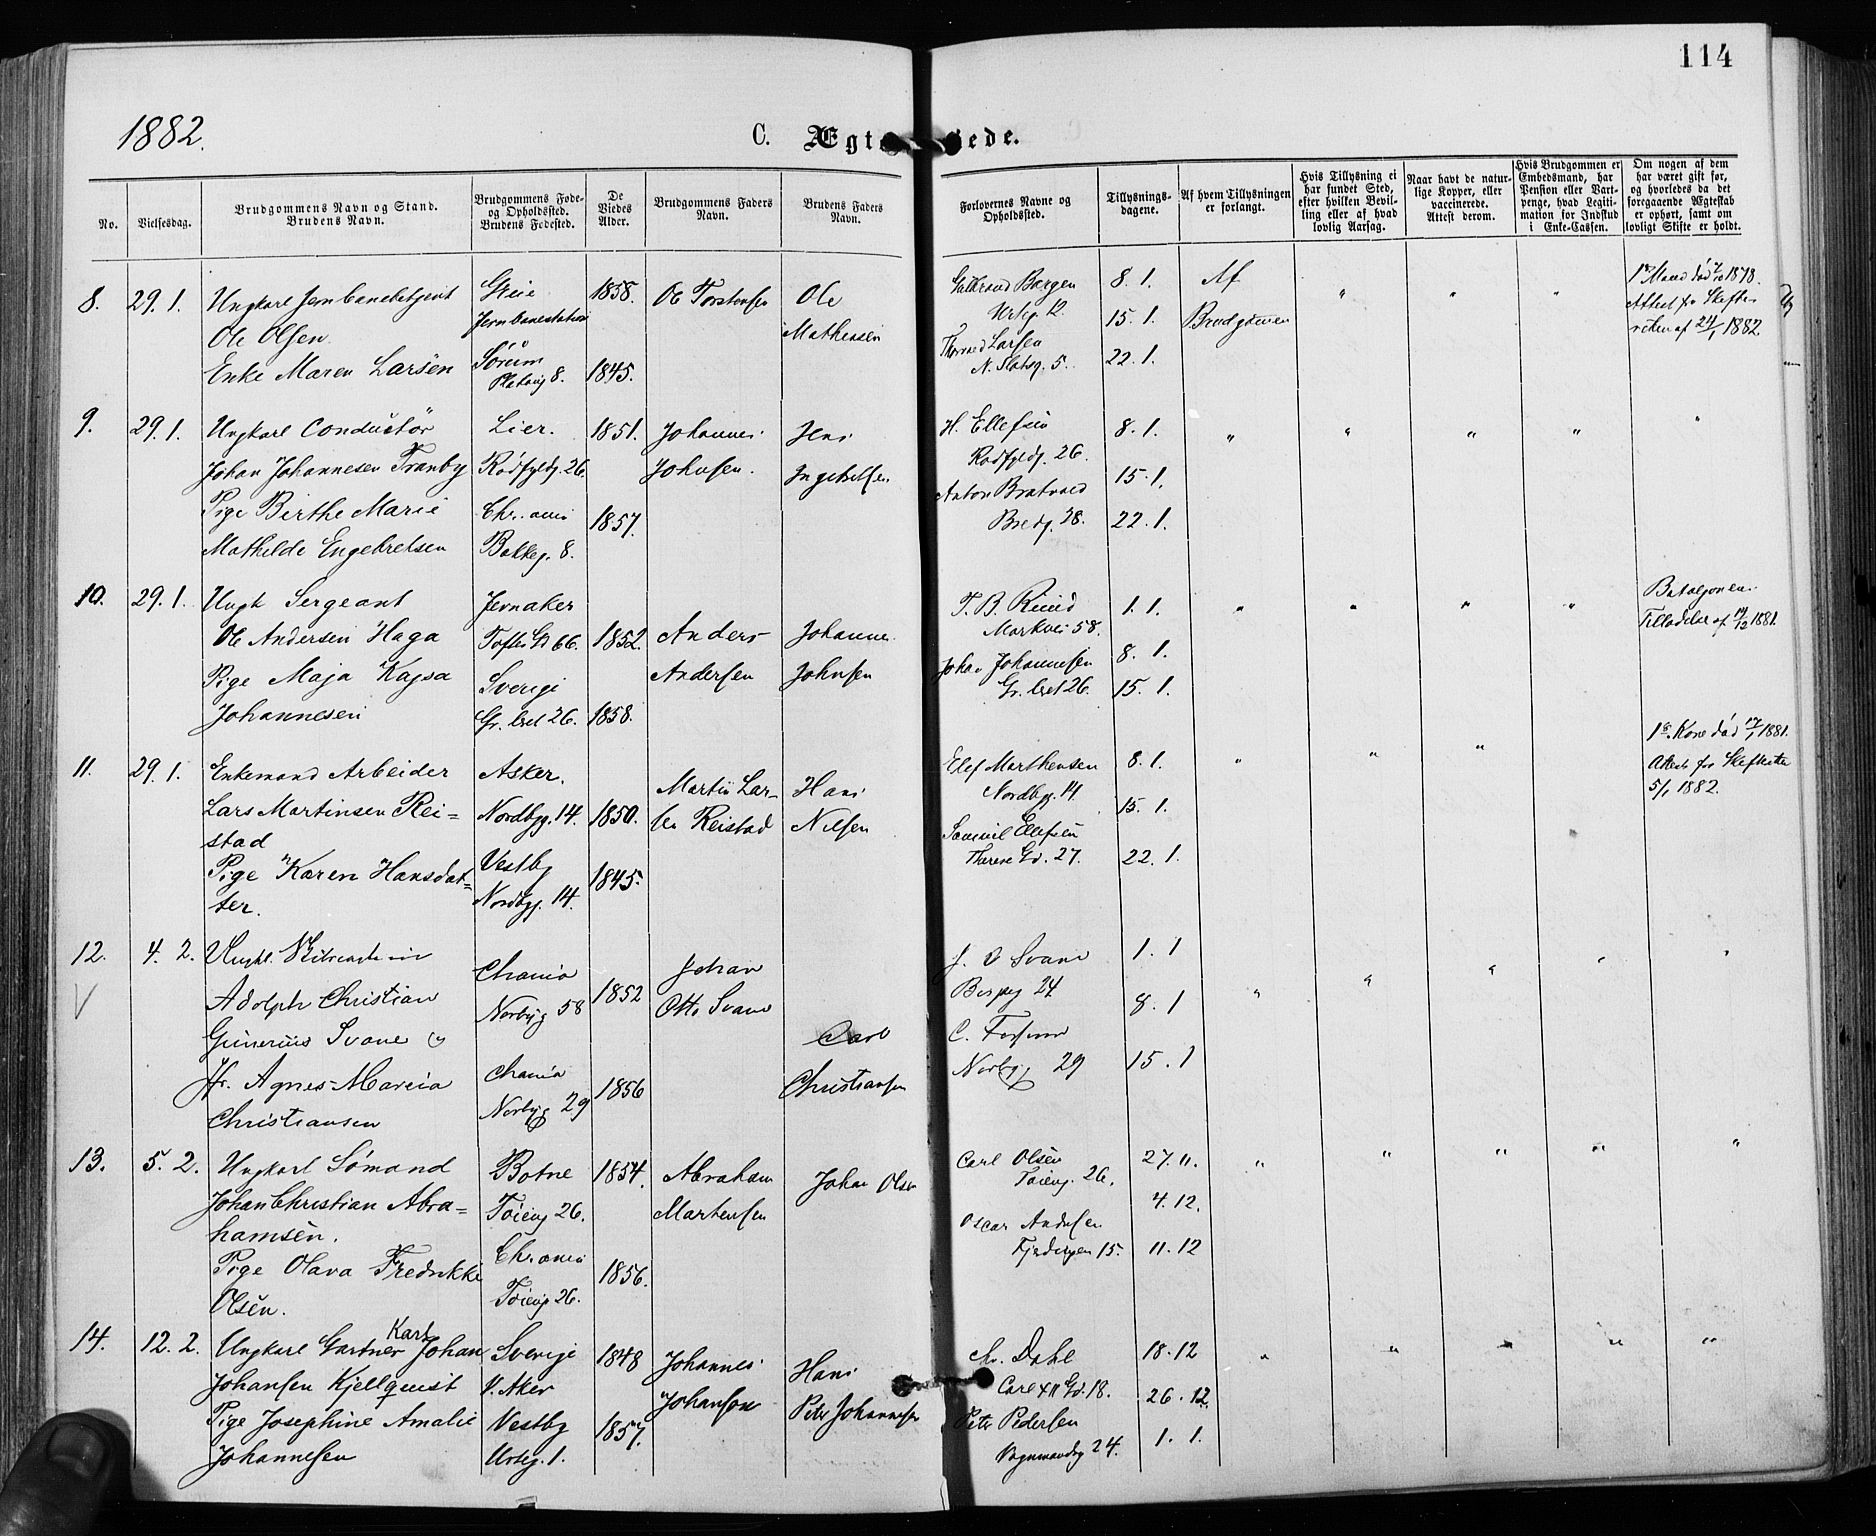 114
1882.
C. Ægt jede.
No.
Vielsesdag.
Brudgommens Navn og Stand.
Brudens Navn.
Brudgommens Føde-
og Opholdssted.
Brudens Fødested.
De
Viedes
Alder.
Brudgommens Faders
Navn.
Brudens Faders
Navn.
Forlovernes Navne og
Opholdssted.
Tillysnings-
dagene.
Af hvem Tillysningen
er forlangt.
Hvis Tillysning ei
har fundet Sted,
efter hvilken Bevil-
ling eller af hvad
lovlig Aarsag.
Naar havt de natur-
lige Kopper, eller
vaccinerede.
Attest derom.
Hvis Brudgommen er
Embedsmand, har
Pension eller Vart-
penge, hvad Legiti-
mation for Indskud
i Enke-Cassen.
Om nogen af dem
har været gift før,
og hvorledes da det
foregaaende Ægteskab
er ophørt, samt om
lovligt Skifte er holdt.
8. 29. 1. Ungkarl Jernbanebetjent
Ole Olsen
Enke Maren Larsen
Jernbanestation
Sørum
8.
1858.
1845.
Ole Torstensen
Ole
Mathensen
Bergen
12.
Larsen
N. Slotsg. 5.
8. 1.
15. 1.
22. 1.
Af
Brudgommen
" " "
1ste Mand død 1878.
Attest fra Skifte-
retten af 24/1 1882.
9. 29. 1. Ungkarl Conductør
Johan Johannesen Tranby
Pige Birthe Marie
Mathilde Engebretsen
Lier.
Rødfyldg. 26.
Chr.ania
Bakkeg. 8.
1851.
1857.
Johannes
Johnsen.
Hans
Ingebretsen
H. Ellefsen
Rødfyldg. 26.
Anton Bratvold
Bredg. 28.
8. 1.
15. 1.
22. 1.
" " " " "
10. 29. 1. Ungk Sergeant
Ole Andersen Haga
Pige Maja Kajsa
Johannesen
Jevnaker
Toftes Gd 66.
Sverige
Gr. leret 26.
1852.
1858.
Anders
Andersen
Johannes
Johnsen
T. B. Ruud
Markvei 58.
Johan Johannesen
Gr. leret 26.
1. 1.
8. 1.
15. 1.
" " " "
Bataljonens
Tilladelse af 14/12 1881.
11. 29. 1. Enkemand Arbeider
Lars Martinsen Rei=
stad
Pige Karen Hansdat=
ter.
Asker.
Nordbyg. 14.
Vestby
Nordbyg. 14.
1850.
1845.
Martin Lar-
sen Reistad
Hans
Nilsen
Elef Marthensen
Nordbyg. 14.
Samuel Ellefsen
Therese Gd. 27.
8. 1.
15. 1.
22. 1.
" " "
1ste Kone død 17/1 1881.
Attest fra Skifteretten
5/1 1882.
12. 4. 2.
V
Adolph Christian
Gunerius Svane og
Jfr. Agnes Marcia
Christiansen
Chania
Norbyg 58
Chania
Norbyg 29
1852
1856
Johan
Otto Svane
Carl
Christiansen
J. O Svane
24
C.
Norbyg 29
1. 1
8. 1
15. 1
" " " " "
13. 5. 2. Ungkarl Sømand
Johan Christian Abra=
hamsen.
Pige Olava Fredrikke
Olsen.
Botne
Tøieng 26.
Chr.ania
Tøieng 26.
1854.
1856.
Abraham
Martensen
Johan Olsen
Carl Olsen
Tøieng. 26.
Oscar Andersen
15.
27. 11.
4. 12.
11. 12
" " " " "
14. 12. 2. Ungkarl Gartner Karl Johan
Johansen Kjellquist
Pige Josephine Amalie
Johannesen
Sverige
V. Aker
Vestby
Urteg. 1.
1848
1857.
Johannes
Johanson
Hans
Peter Johannesen
Chr. Dahl
Carl XII Gd. 18.
Peter Pedersen
Vognmandsg 24.
18. 12
26. 12.
1. 1.
" " " " "